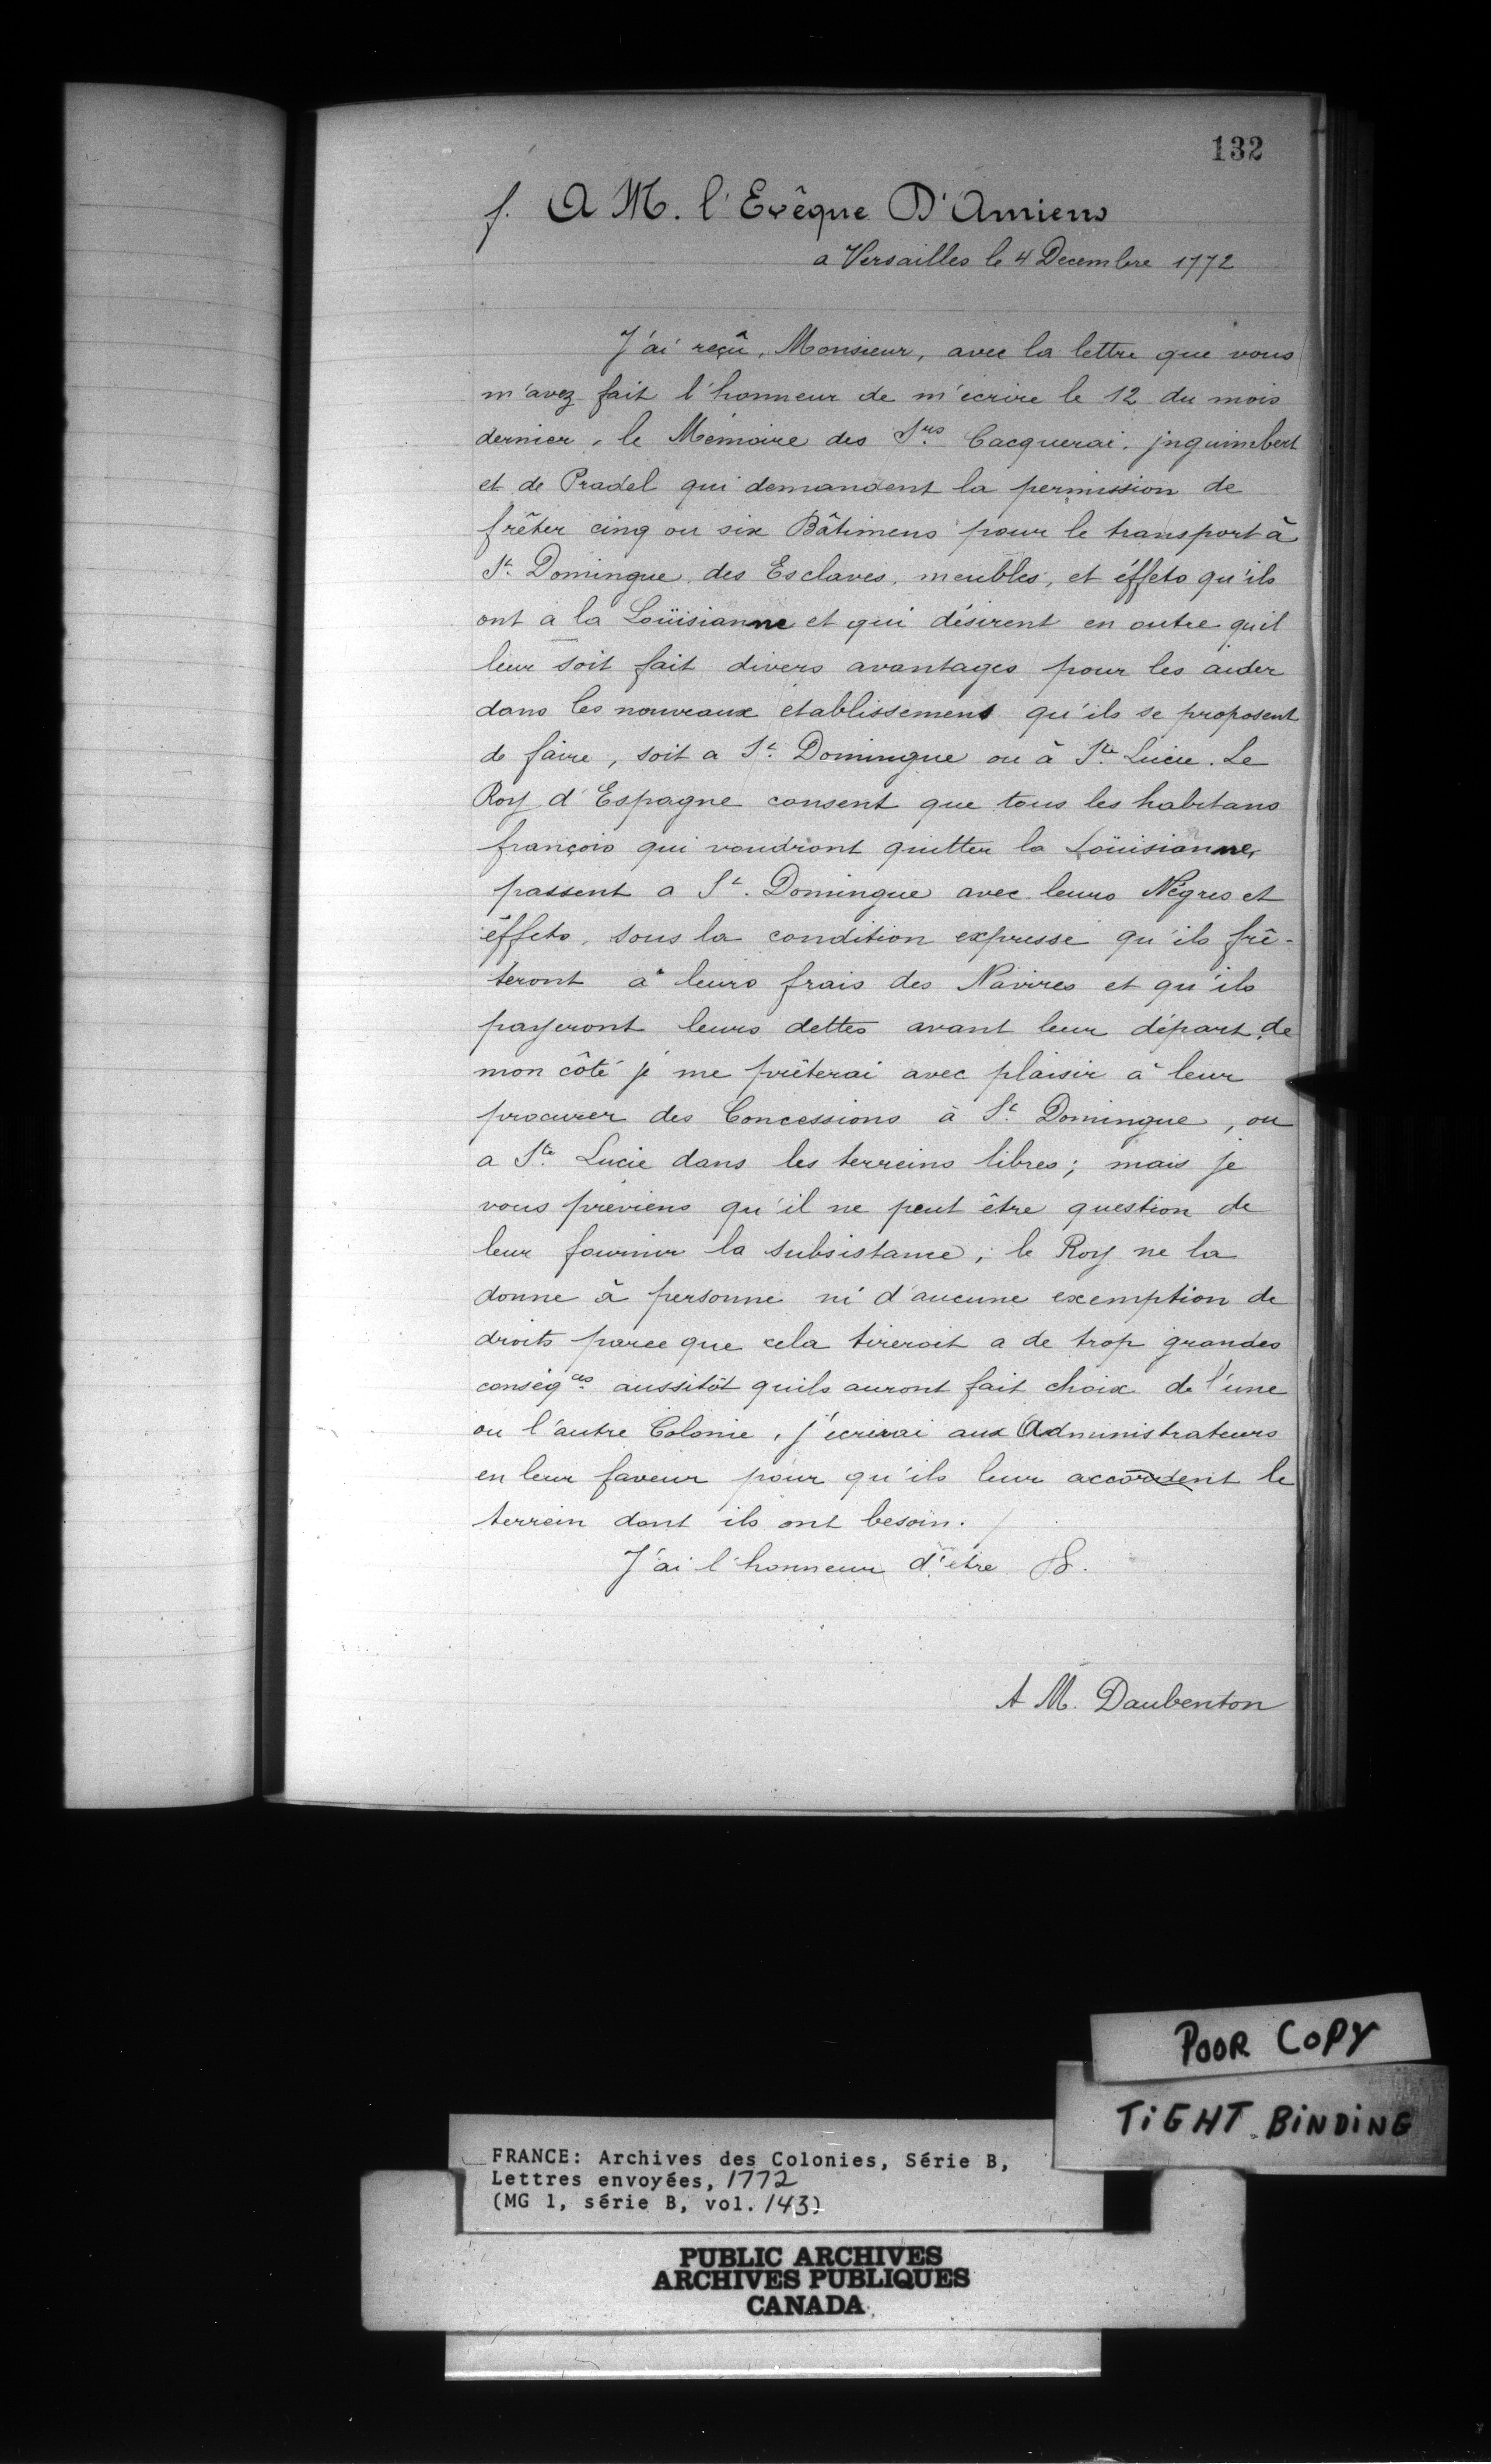 132
f. A M. l'Evêque D'Amiens
a Versailles le 4 Decembre 1772
J'ai reçû, Monsieur, avec la lettre que vous
m'avez fait l'honneur de m'écrire le 12 du mois
dernier, le Mémoire des Srs. Cacquerai, jnguimbert
et de Pradel qui demandent la permission de
frêter cinq ou six Bâtimens pour le transport à
St. Domingue des Esclaves, meubles, et éffets qu'ils
ont à la Loüisianne et qui désirent en outre quil
leur soit fait divers avantages pour les aider
dans les nouveaux etablissemens qu'ils se proposent
de faire, soit a St. Domingue ou à Ste. Lucie. Le
Roy d'Espagne consent que tous les habitans
françois qui voudront quitter la Loüisianne,
passent a St. Domingue avec leurs Négres et
éffets, sous la condition expresse qu'ils frê-
teront à leurs frais des Navires et qu'ils
payeront leurs dettes avant leur départ, de
mon côté je me prêterai avec plaisir à leur
procurer des Concessions à St. Domingue, ou
a Ste. Lucie dans les terreins libres; mais je
vous préviens qu'il ne peut être question de
leur fournir la subsistance; le Roy ne la
donne à personne ni d'aucune exemption de
droits parce que cela tireroit a de trop grandes
conséqces. aussitôt quils auront fait choix de l'une
ou l'autre Colonie, j'écrirai aux Administrateurs
en leur faveur pour qu'ils leur accordent le
terrein dont ils ont besoin.
J'ai l'honneur d'etre &.
A M. Daubenton
POOR COPY
TIGHT BINDING
FRANCE: Archives des Colonies, Série B,
Lettres envoyées, 1772
(MG 1, série B, vol. 143)
PUBLIC ARCHIVES
ARCHIVES PUBLIQUES
CANADA